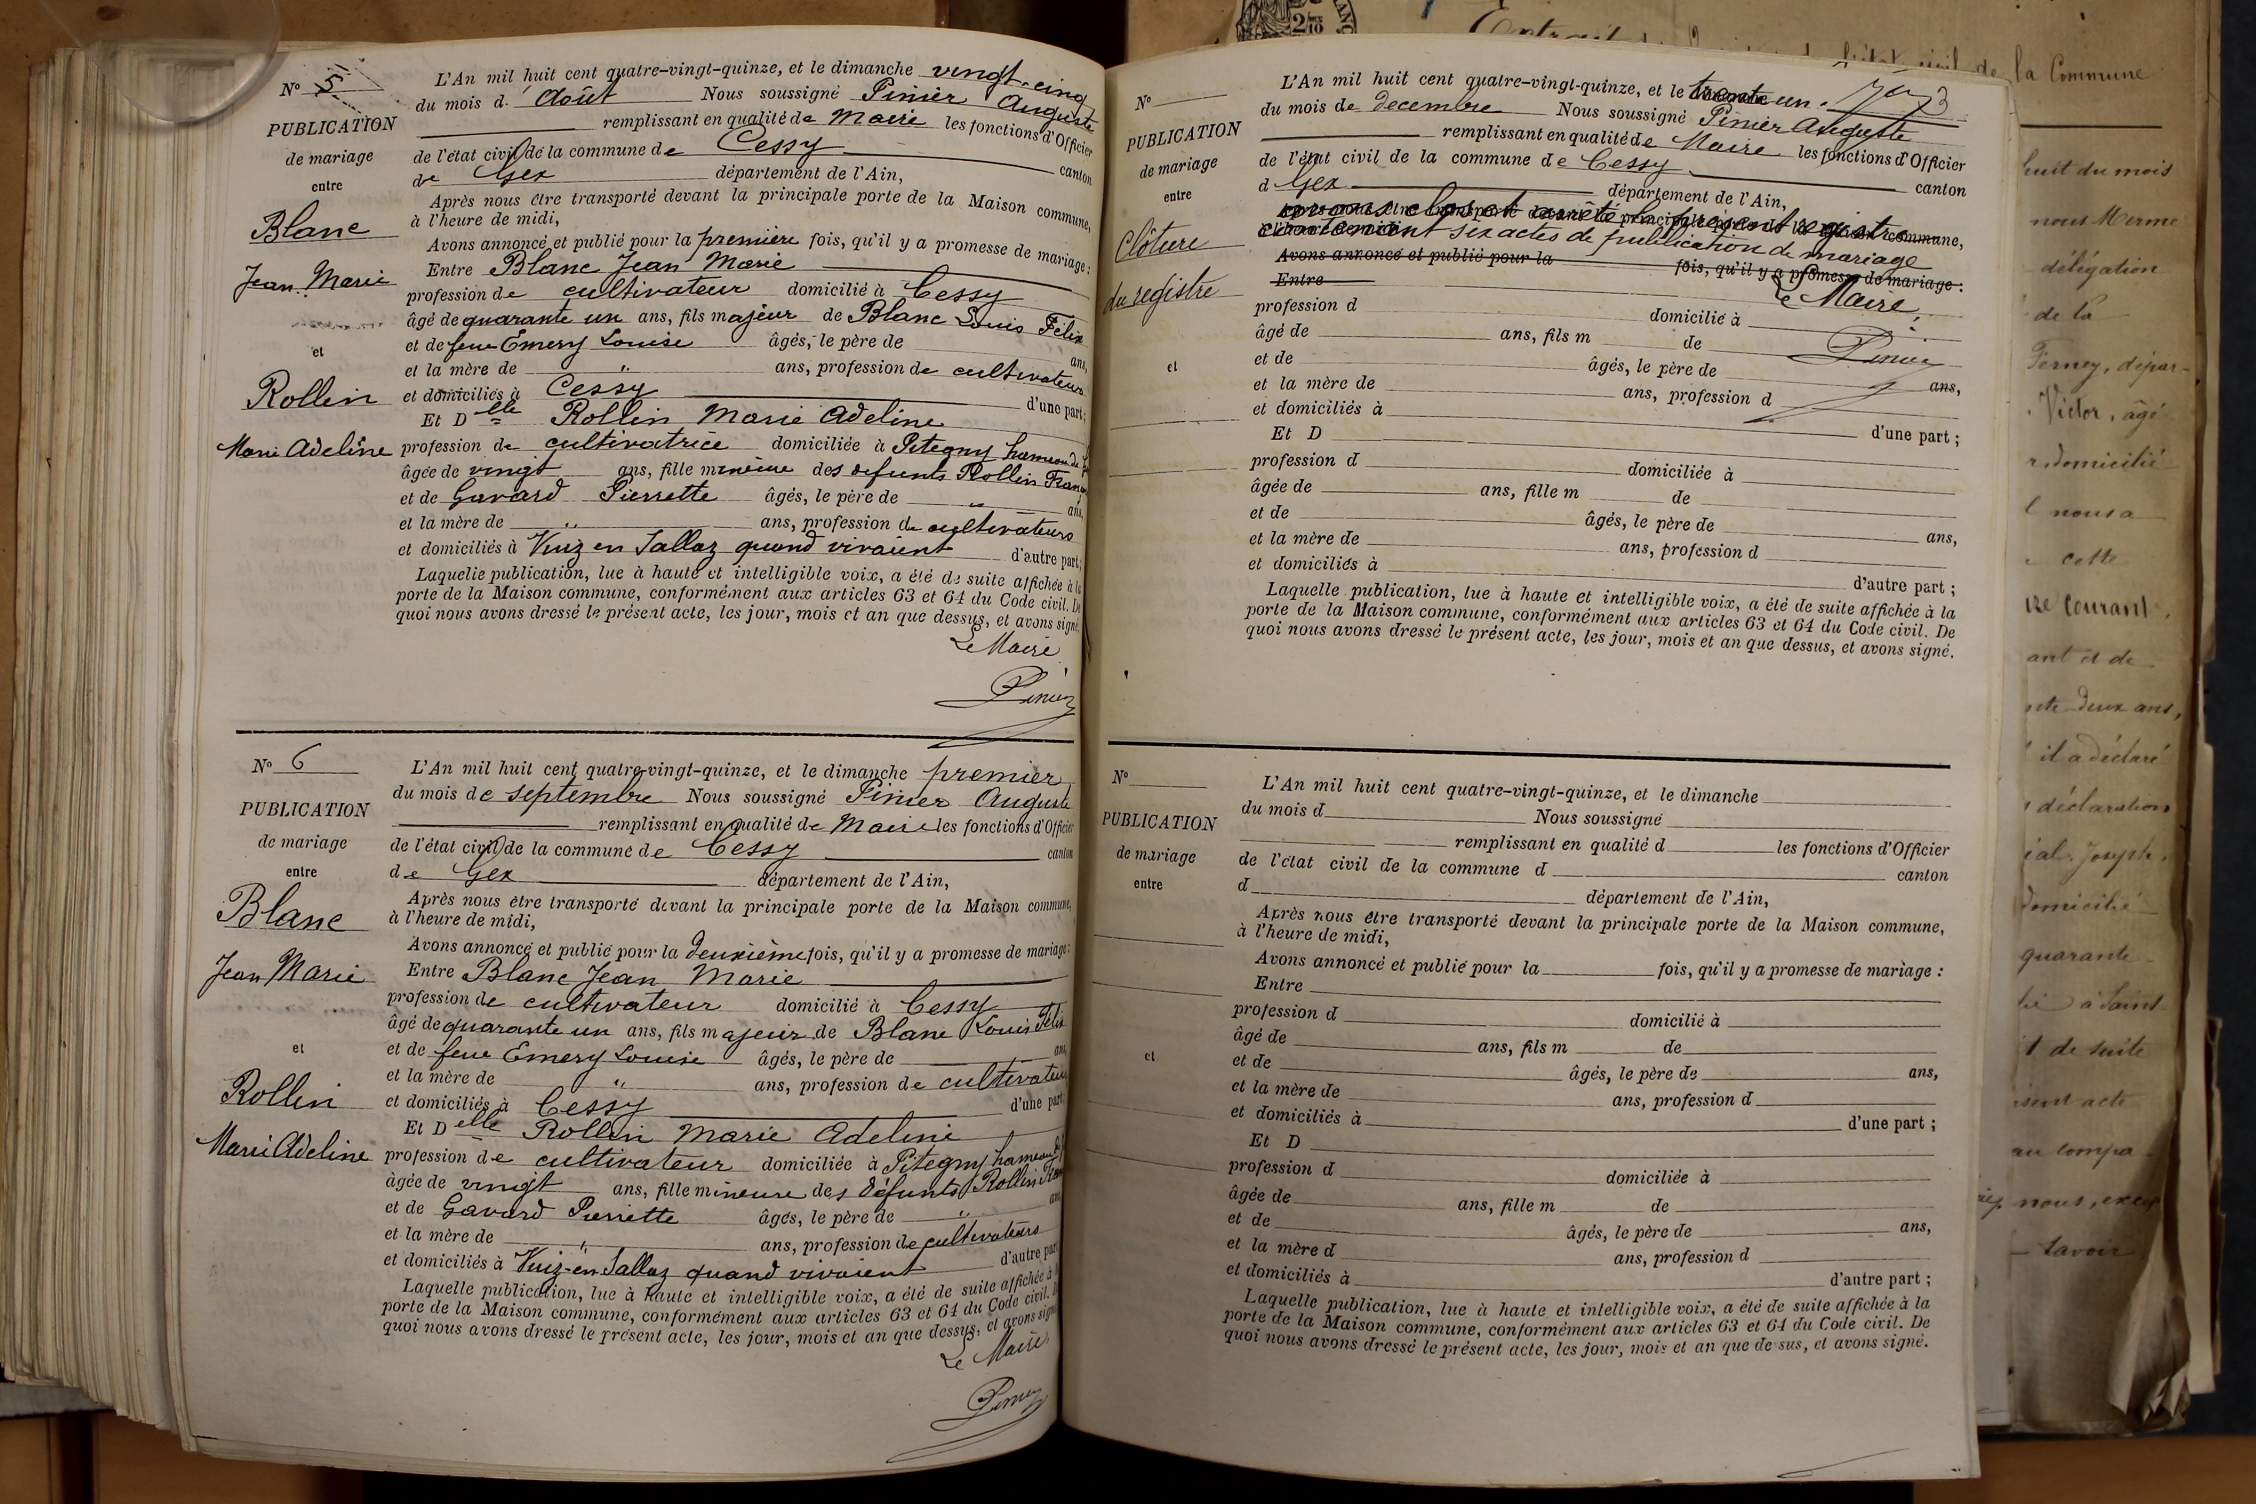 N° 5
PUBLICATION
de mariage
entre
Blanc
Jean Marie
et
Rollin
Marie Adeline
L'An mil huit cent quatre-vingt-quinze, et le dimanche vingt-cinq
du mois d. Août Nous soussigné Pinier Auguste
remplissant en qualité de Maire les fonctions d'Officier
de l'état civil de la commune de Cessy canton
de Gex département de l'Ain,
Après nous être transporté devant la principale porte de la Maison commune,
à l'heure de midi,
Avons annoncé et publié pour la première fois, qu'il y a promesse de mariage :
Entre Blanc Jean Marie
profession de cultivateur domicilié à Cessy
âgé de quarante un ans, fils majeur de Blanc Louis Félix
et de feue Emery Louise âgés, le père de ans,
et la mère de " ans, profession de cultivateurs
et domiciliés à Cessy d'une part;
Et Delle Rollin Marie Adeline
profession de cultivatrice domiciliée à Pitegny hameau de
âgée de vingt ans, fille mineure des défunts Rollin
et de Gavard Pierrette âgés, le père de " ans,
et la mère de " ans, profession de cultivateurs
et domiciliés à Viuz en Sallaz quand vivaient d'autre part;
Laquelle publication, lue à haute et intelligible voix, a été de suite affichée à la
porte de la Maison commune, conformément aux articles 63 et 64 du Code civil. De
quoi nous avons dressé le présent acte, les jour, mois et an que dessus, et avons signé.
Le Maire
Pinier
N° 6
PUBLICATION
de mariage
entre
Blanc
Jean Marie
et
Rollin
Marie Adeline
L'An mil huit cent quatre-vingt-quinze, et le dimanche premier
du mois de septembre Nous soussigné Pinier Auguste
remplissant en qualité de Maire les fonctions d'Officier
de l'état civil de la commune de Cessy canton
de Gex département de l'Ain,
Après nous être transporté devant la principale porte de la Maison commune,
à l'heure de midi,
Avons annoncé et publié pour la deuxième fois, qu'il y a promesse de mariage :
Entre Blanc Jean Marie
profession de cultivateur domicilié à Cessy
âgé de quarante un ans, fils majeur de Blanc Louis Félix
et de feue Emery Louise âgés, le père de ans,
et la mère de " ans, profession de cultivateur
et domiciliés à Cessy d'une part
Et Delle Rollin Marie Adeline
profession de cultivateur domiciliée à Pitegny hameau
âgée de vingt ans, fille mineure des défunts Rollin
et de Gavard Pierrette âgés, le père de " ans
et la mère de " ans, profession de cultivateurs
et domiciliés à Viuz-en Sallaz quand vivaient d'autre part
Laquelle publication, lue à haute et intelligible voix, a été de suite affichée à
porte de la Maison commune, conformément aux articles 63 et 64 du Code civil.
quoi nous avons dressé le présent acte, les jour, mois et an que dessus, et avons signé
Le Maire
Pinier
N°
PUBLICATION
de mariage
entre
Clôture
du registre
et
L'An mil huit cent quatre-vingt-quinze, et le trente un.
du mois de decembre Nous soussigné Pinier Auguste
remplissant en qualité de Maire les fonctions d'Officier
de l'état civil de la commune de Cessy canton
d Gex département de l'Ain,
avons clos et arrêté le présent registre
contenant six actes de publication de mariage
Avons annoncé et publié pour la fois, qu'il y a promesse de mariage :
Entre
Le Maire,
profession d domicilié à
âgé de ans, fils m de
Pinier
et de âgés, le père de ans,
et la mère de ans, profession d
et domiciliés à d'une part ;
Et D
profession d domiciliée à
âgée de ans, fille m de
et de âgés, le père de ans,
et la mère de ans, profession d
et domiciliés à d'autre part ;
Laquelle publication, lue à haute et intelligible voix, a été de suite affichée à la
porte de la Maison commune, conformément aux articles 63 et 64 du Code civil. De
quoi nous avons dressé le présent acte, les jour, mois et an que dessus, et avons signé.
N°
PUBLICATION
de mariage
entre
et
L'An mil huit cent quatre-vingt-quinze, et le dimanche
du mois d Nous soussigné
remplissant en qualité d les fonctions d'Officier
de l'état civil de la commune d canton
d département de l'Ain,
Après nous être transporté devant la principale porte de la Maison commune,
à l'heure de midi,
Avons annoncé et publié pour la fois, qu'il y a promesse de mariage :
Entre
profession d domicilié à
âgé de ans, fils m de
et de âgés, le père de ans,
et la mère de ans, profession d
et domiciliés à d'une part ;
Et D
profession d domiciliée à
âgée de ans, fille m de
et de âgés, le père de ans,
et la mère d ans, profession d
et domiciliés à d'autre part ;
Laquelle publication, lue à haute et intelligible voix, a été de suite affichée à la
porte de la Maison commune, conformément aux articles 63 et 64 du Code civil. De
quoi nous avons dressé le présent acte, les jour, mois et an que dessus, et avons signé.
la Commune
huit du mois
nous Merme
délégation
de la
Ferney, dépar-
Victor, âgé
domicilié
nous a
cette
courant,
ant et de
deux ans,
il a déclaré
déclaration
Joseph,
domicilié
quarante
à Saint
de suite
acte
au compa
nous, excep
savoir